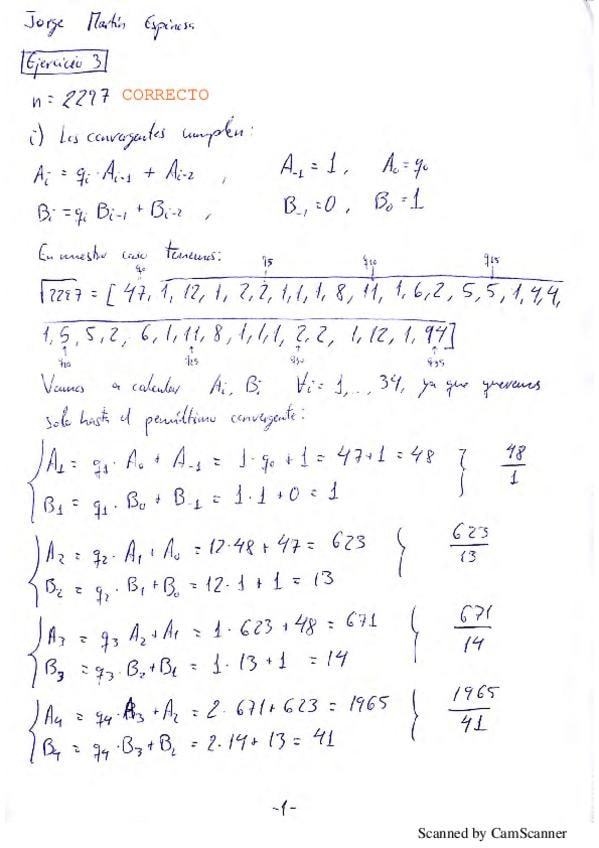 Jorge Martín Espinosa
Ejercicio 3
n = 2297 CORRECTO
i) Los convergentes cumplen:
Ai = qi · Ai-1 + Ai-2 , A-1 = 1, A0 = q0
Bi = qi Bi-1 + Bi-2 , B-1 = 0, B0 = 1
En nuestro caso tenemos:
q0 q5 q10 q15
√2297 = [47, 1, 12, 1, 2, 2, 1, 1, 1, 8, 11, 1, 6, 2, 5, 5, 1, 4, 4,
1, 5, 5, 2, 6, 1, 11, 8, 1, 1, 1, 2, 2, 1, 12, 1, 94]
q20 q25 q30 q35
Vamos a calcular Ai, Bi ∀i = 1, ..., 34, ya que queremos
solo hasta el penúltimo convergente:
A1 = q1 · A0 + A-1 = 1 · q0 + 1 = 47 + 1 = 48 } 48/1
B1 = q1 · B0 + B-1 = 1 · 1 + 0 = 1
A2 = q2 · A1 + A0 = 12 · 48 + 47 = 623 } 623/13
B2 = q2 · B1 + B0 = 12 · 1 + 1 = 13
A3 = q3 A2 + A1 = 1 · 623 + 48 = 671 } 671/14
B3 = q3 · B2 + B1 = 1 · 13 + 1 = 14
A4 = q4 · A3 + A2 = 2 · 671 + 623 = 1965 } 1965/41
B4 = q4 · B3 + B2 = 2 · 14 + 13 = 41
-1-
Scanned by CamScanner